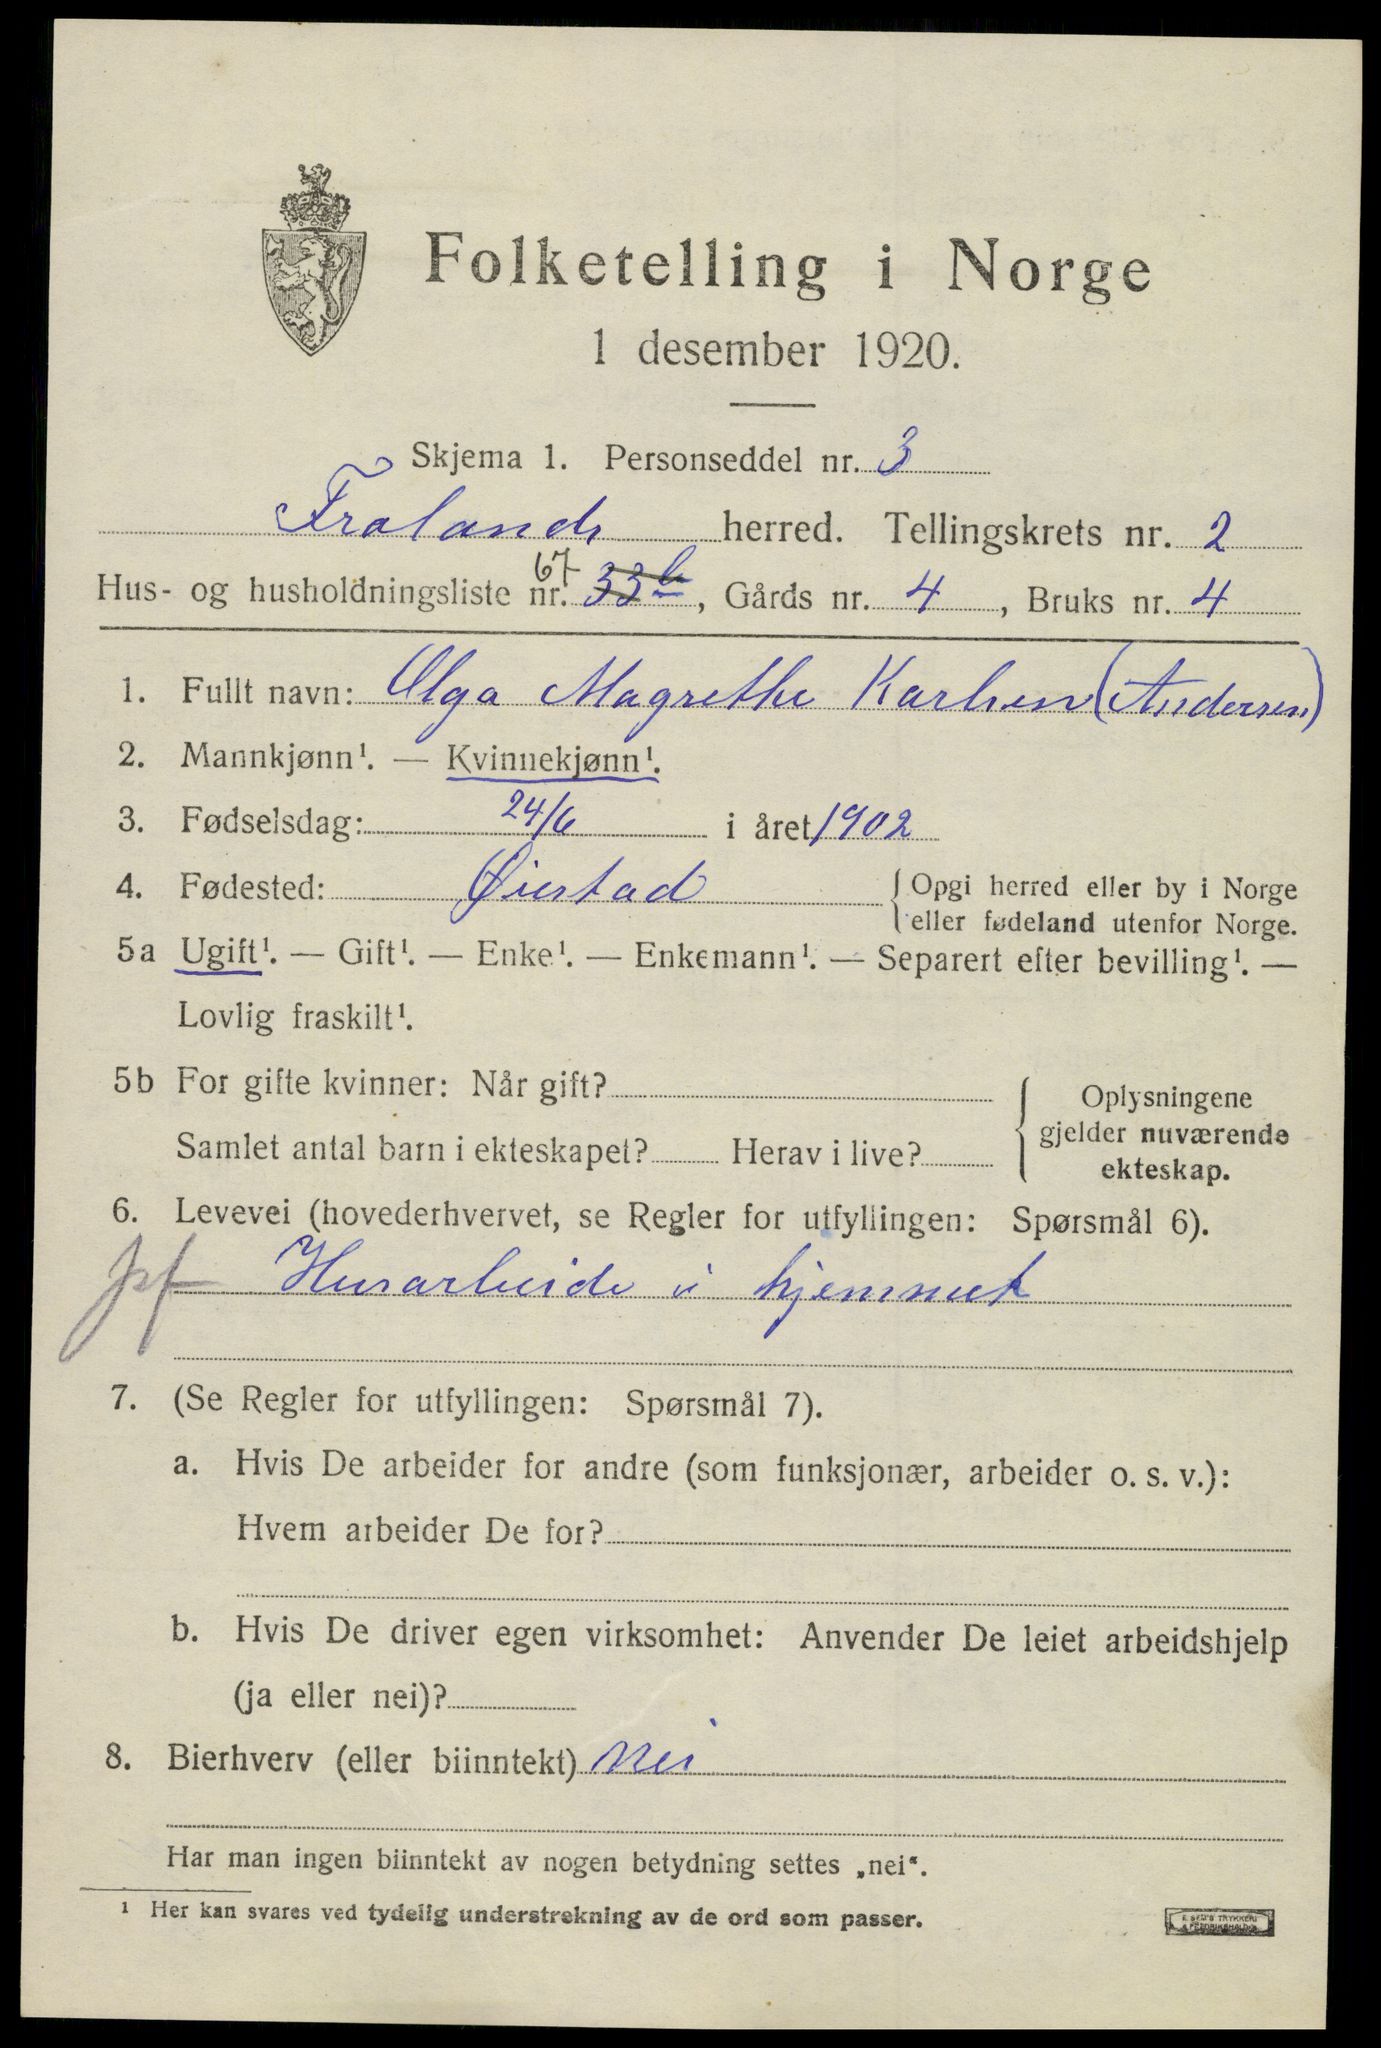 Folketelling i Norge
1 desember 1920.
Skjema 1. Personseddel nr. 3
Frolands herred. Tellingskrets nr. 2
67
Hus- og husholdningsliste nr. 33b, Gårds nr. 4, Bruks nr. 4
1. Fullt navn: Olga Magrethe Karlsen (Andersen)
2. Mannkjønn¹. — Kvinnekjønn¹.
3. Fødselsdag: 24/6 i året 1902
4. Fødested: Øiestad {Opgi herred eller by i Norge
eller fødeland utenfor Norge.
5a Ugift¹. — Gift¹. — Enke¹. — Enkemann¹. — Separert efter bevilling¹. —
Lovlig fraskilt¹.
5b For gifte kvinner: Når gift? { Oplysningene
gjelder nuværende
Samlet antal barn i ekteskapet? Herav i live? ekteskap.
6. Levevei (hovederhvervet, se Regler for utfyllingen: Spørsmål 6).
Husarbeide i hjemmet
7. (Se Regler for utfyllingen: Spørsmål 7).
a. Hvis De arbeider for andre (som funksjonær, arbeider o. s. v.):
Hvem arbeider De for?
b. Hvis De driver egen virksomhet: Anvender De leiet arbeidshjelp
(ja eller nei)?
8. Bierhverv (eller biinntekt) Nei
Har man ingen biinntekt av nogen betydning settes „nei“.
¹ Her kan svares ved tydelig understrekning av de ord som passer.
E. SEM'S TRYKKERI
FREDRIKSHALD